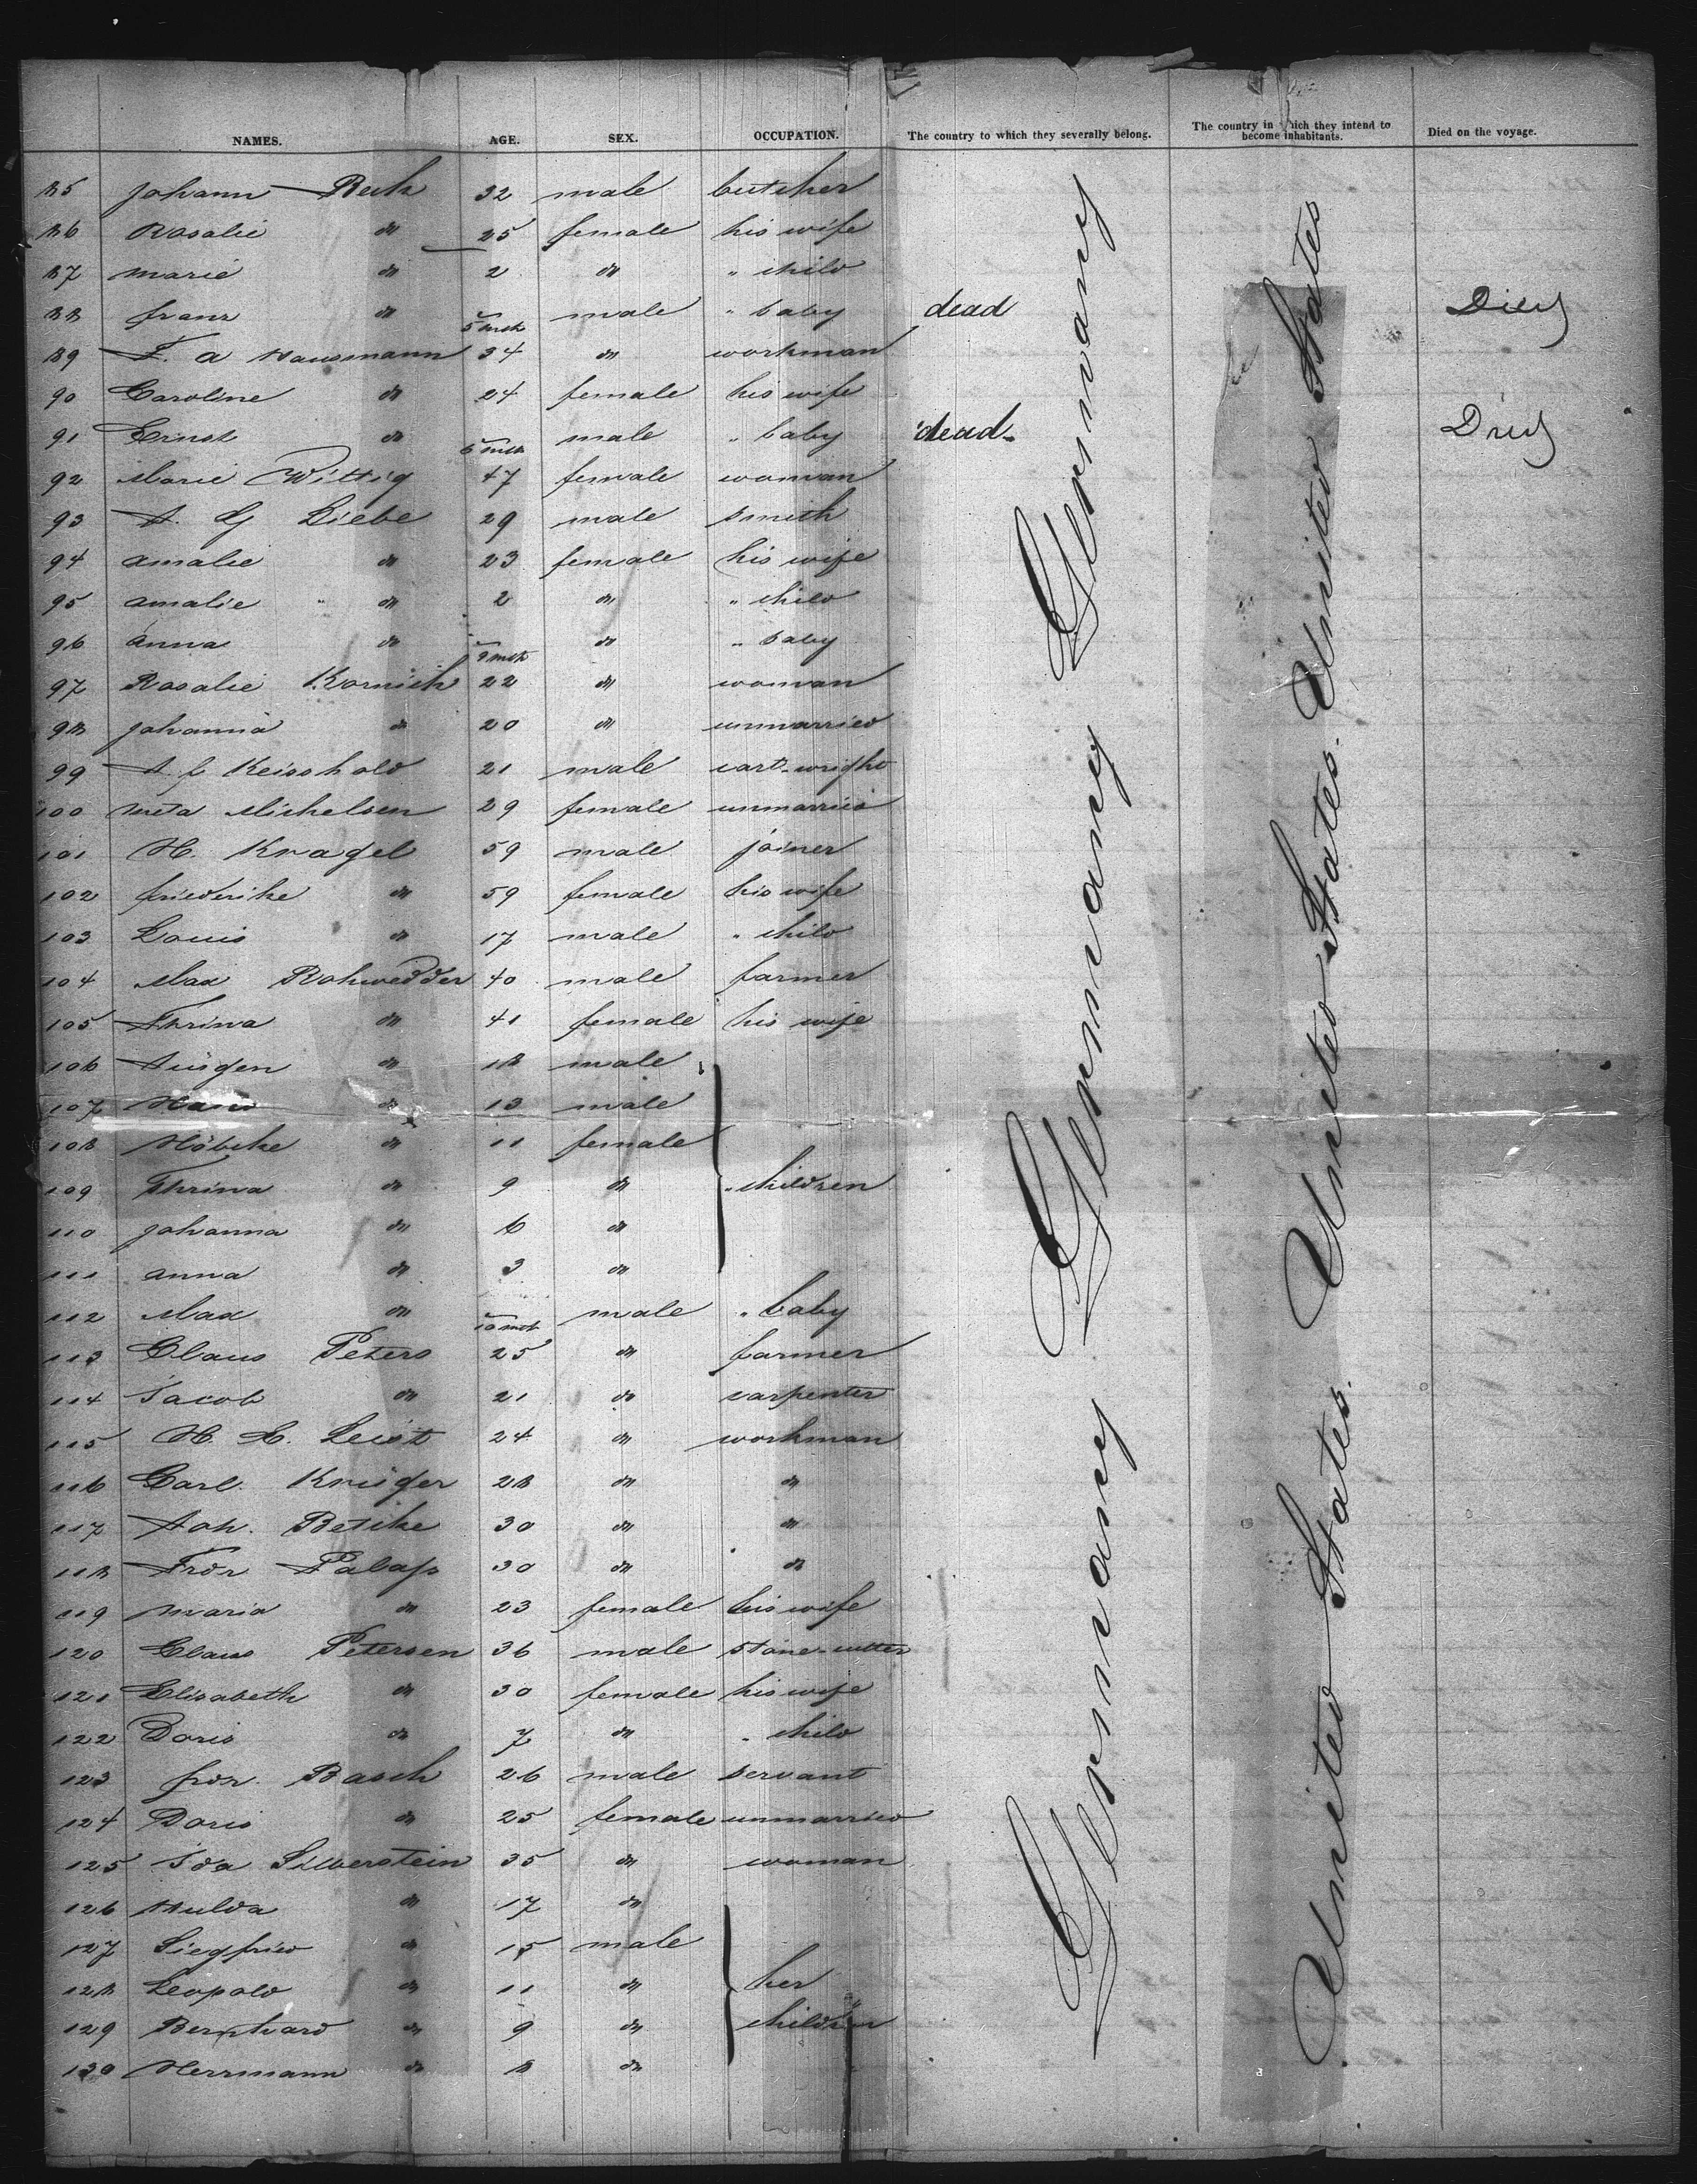 NAMES. AGE. SEX. OCCUPATION. The country to which they severally belong. The country in which they intend to become inhabitants. Died on the voyage.
85 Johann 32 male butcher
86 Rosalie do 25 female his wife
87 Marie do 2 do " child
88 Franz do 5 mth male " baby dead Died
89 F. A Hausmann 34 do workman
90 Caroline do 24 female his wife
91 Ernst do 6 mth male " baby dead Died
92 Marie Wittig 47 female woman
93 A. G Liebe 29 male smith
94 Amalie do 23 female his wife
95 Amalie " do 2 do " child
96 Anna do 9 mth do " baby
97 Rosalie Kornich 22 do woman
98 Johanna do 20 do unmarried
99 A. F Reisshold 21 male cart-wright
100 Meta Michelsen 29 female unmarried
101 H. Kragel 59 male joiner
102 Friederike do 59 female his wife
103 Louis do 17 male " child
104 Max Rohwedder 40 male farmer
105 Thrina do 41 female his wife
106 Jürgen do 18 male
107 Hans do 13 male
108 Höbcke do 11 female
109 Thrina do 9 do " children
110 Johanna do 6 do
111 Anna do 3 do
112 Max do 10 mth male " baby
113 Claus Peters 25 do farmer
114 Jacob do 21 do carpenter
115 H. C. Leist 24 do workman
116 Carl. Krüger 28 do do
117 Joh. Betcke 30 do do
118 Frdr 30 do do
119 Maria do 23 female his wife
120 Claus Petersen 36 male stone-cutter
121 Elisabeth do 30 female his wife
122 Doris do 7 do " child
123 Frdr. Basch 26 male servant
124 Doris do 25 female unmarried
125 Ida Silberstein 35 do woman
126 Hulda do 17 do
127 Siegfried do 15 male
128 Leopold do 11 do her
129 Bernhard do 9 do children
130 Herrmann do 8 do
Germany Germany Germany Germany
United States. United States. United States